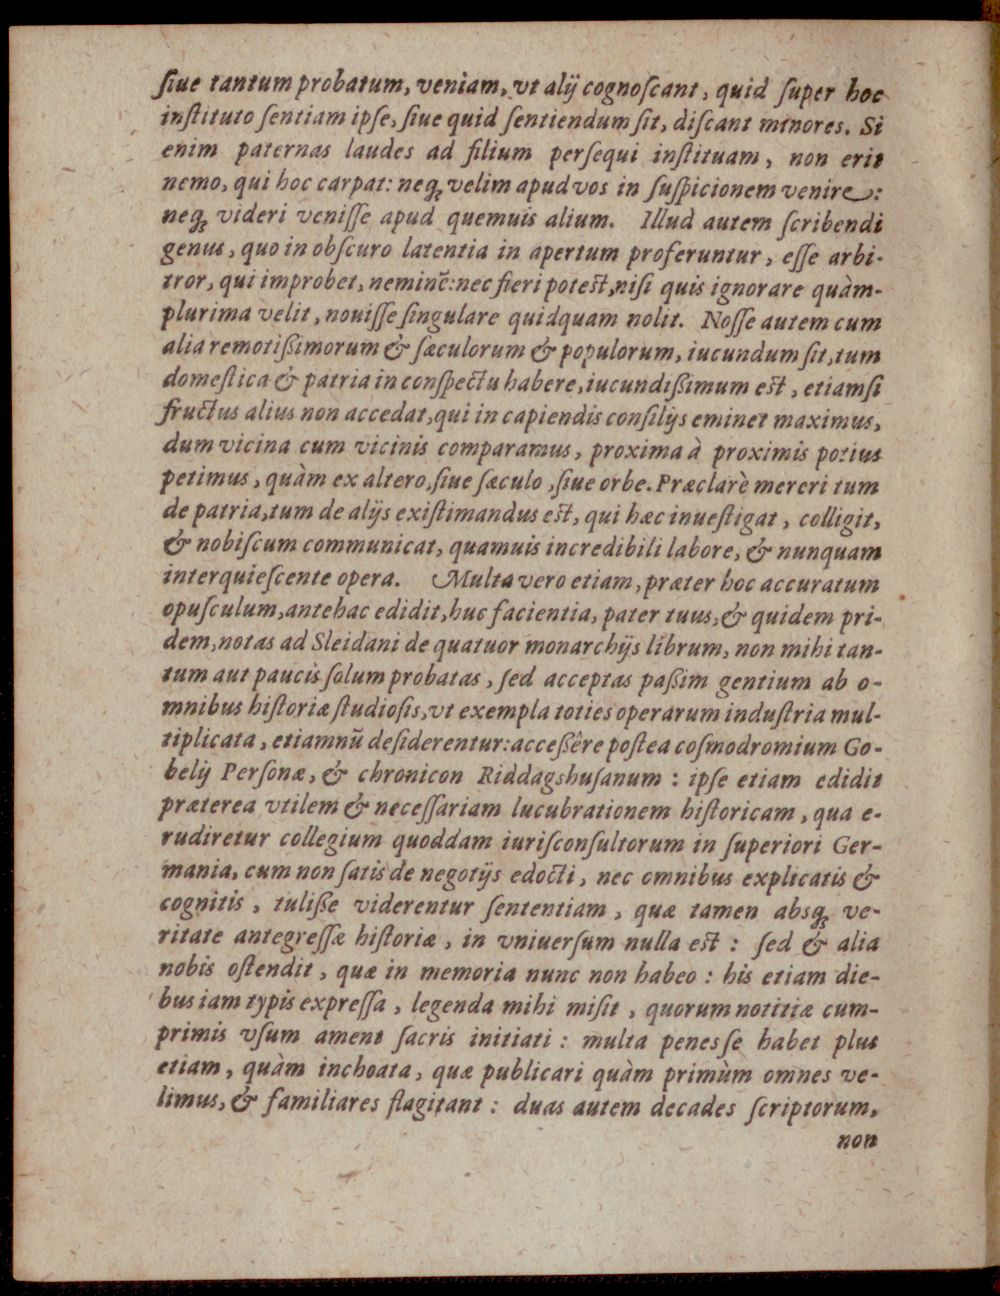 ſiue tantum probatum, veniam, vt alij cognoſcant, quid ſuper hoc
inſtituto ſentiam ipſe, ſiue quid ſentiendum ſit, diſcant minores. Si
enim paternas laudes ad filium perſequi inſtituam, non erit
nemo, qui hoc carpat: neq; velim apud vos in ſuſpicionem venire:
neq; videri veniſſe apud quemuis alium. Illud autem ſcribendi
genus, quo in obſcuro latentia in apertum proferuntur, eſſe arbi-
tror, qui improbet, neminē: nec fieri poteſt, niſi quis ignorare quàm-
plurima velit, nouiſſe ſingulare quidquam nolit. Noſſe autem cum
alia remotißimorum & ſæculorum & populorum, iucundum ſit, tum
domeſtica & patria in conſpectu habere, iucundißimum eſt, etiamſi
fructus alius non accedat, qui in capiendis conſilijs eminet maximus,
dum vicina cum vicinis comparamus, proxima à proximis potius
petimus, quàm ex altero, ſiue ſæculo, ſiue orbe. Præclarè mereri tum
de patria, tum de alijs exiſtimandus eſt, qui hæc inueſtigat, colligit,
& nobiſcum communicat, quamuis incredibili labore, & nunquam
interquieſcente opera. Multa vero etiam, præter hoc accuratum
opuſculum, antehac edidit, huc facientia, pater tuus, & quidem pri-
dem, notas ad Sleidani de quatuor monarchijs librum, non mihi tan-
tum aut paucis ſolum probatas, ſed acceptas paßim gentium ab o-
mnibus hiſtoriæ ſtudioſis, vt exempla toties operarum induſtria mul-
tiplicata, etiamnū deſiderentur: acceßêre poſtea coſmodromium Go-
belij Perſonæ, & chronicon Riddagshuſanum: ipſe etiam edidit
præterea vtilem & neceſſariam lucubrationem hiſtoricam, qua e-
rudiretur collegium quoddam iuriſconſultorum in ſuperiori Ger-
mania, cum non ſatis de negotijs edocti, nec omnibus explicatis &
cognitis, tuliße viderentur ſententiam, quæ tamen absq; ve-
ritate antegreſſæ hiſtoriæ, in vniuerſum nulla eſt: ſed & alia
nobis oſtendit, quæ in memoria nunc non habeo: his etiam die-
bus iam typis expreſſa, legenda mihi miſit, quorum notitiæ cum-
primis vſum ament ſacris initiati: multa penes ſe habet plus
etiam, quàm inchoata, quæ publicari quàm primùm omnes ve-
limus, & familiares flagitant: duas autem decades ſcriptorum,
non